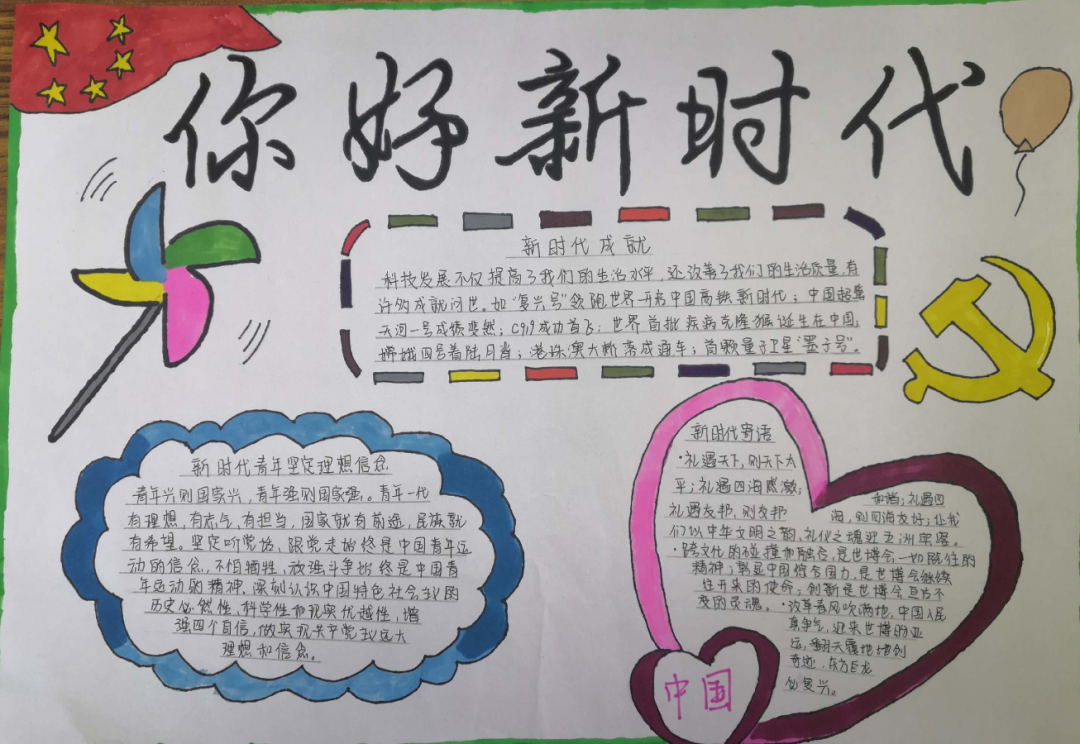 你好新时代
新时代成就
科技发展不仅提高了我们的生活水平,还改善了我们的生活质量,有
许多成就问世。如“复兴号”领跑世界开启中国高铁新时代;中国超算
天河一号成绩斐然;C919成功首飞;世界首批疾病克隆猴诞生在中国;
嫦娥四号着陆月背;港珠澳大桥落成通车;首颗量子卫星“墨子号”。
新时代青年坚定理想信念
青年兴则国家兴,青年强则国家强。青年一代
有理想,有志气,有担当,国家就有前途,民族就
有希望。坚定听党话、跟党走始终是中国青年运
动的信念,不怕牺牲、顽强斗争始终是中国青
年运动的精神,深刻认识中国特色社会主义的
历史必然性,科学性和现实优越性,增
强四个自信,做实现共产党主义远大
理想和信念。
新时代寄语
·礼遇天下,则天下太
平;礼遇四海感激;
礼遇友邦、则友邦
和谐;礼遇四
海,则四海友好;让我
们以中华文明之韵,礼仪之魂迎五洲宾客。
·跨文化的碰撞和融合,是世博会一切既往的
精神;彰显中国综合国力,是世博会继续
往开来的使命;创新是世博会亘古不
变的灵魂。·改革春风吹满地,中国人民
真争气,迎来世博的业
运,翻天覆地增创
奇迹,东方巨龙
必复兴。
中国